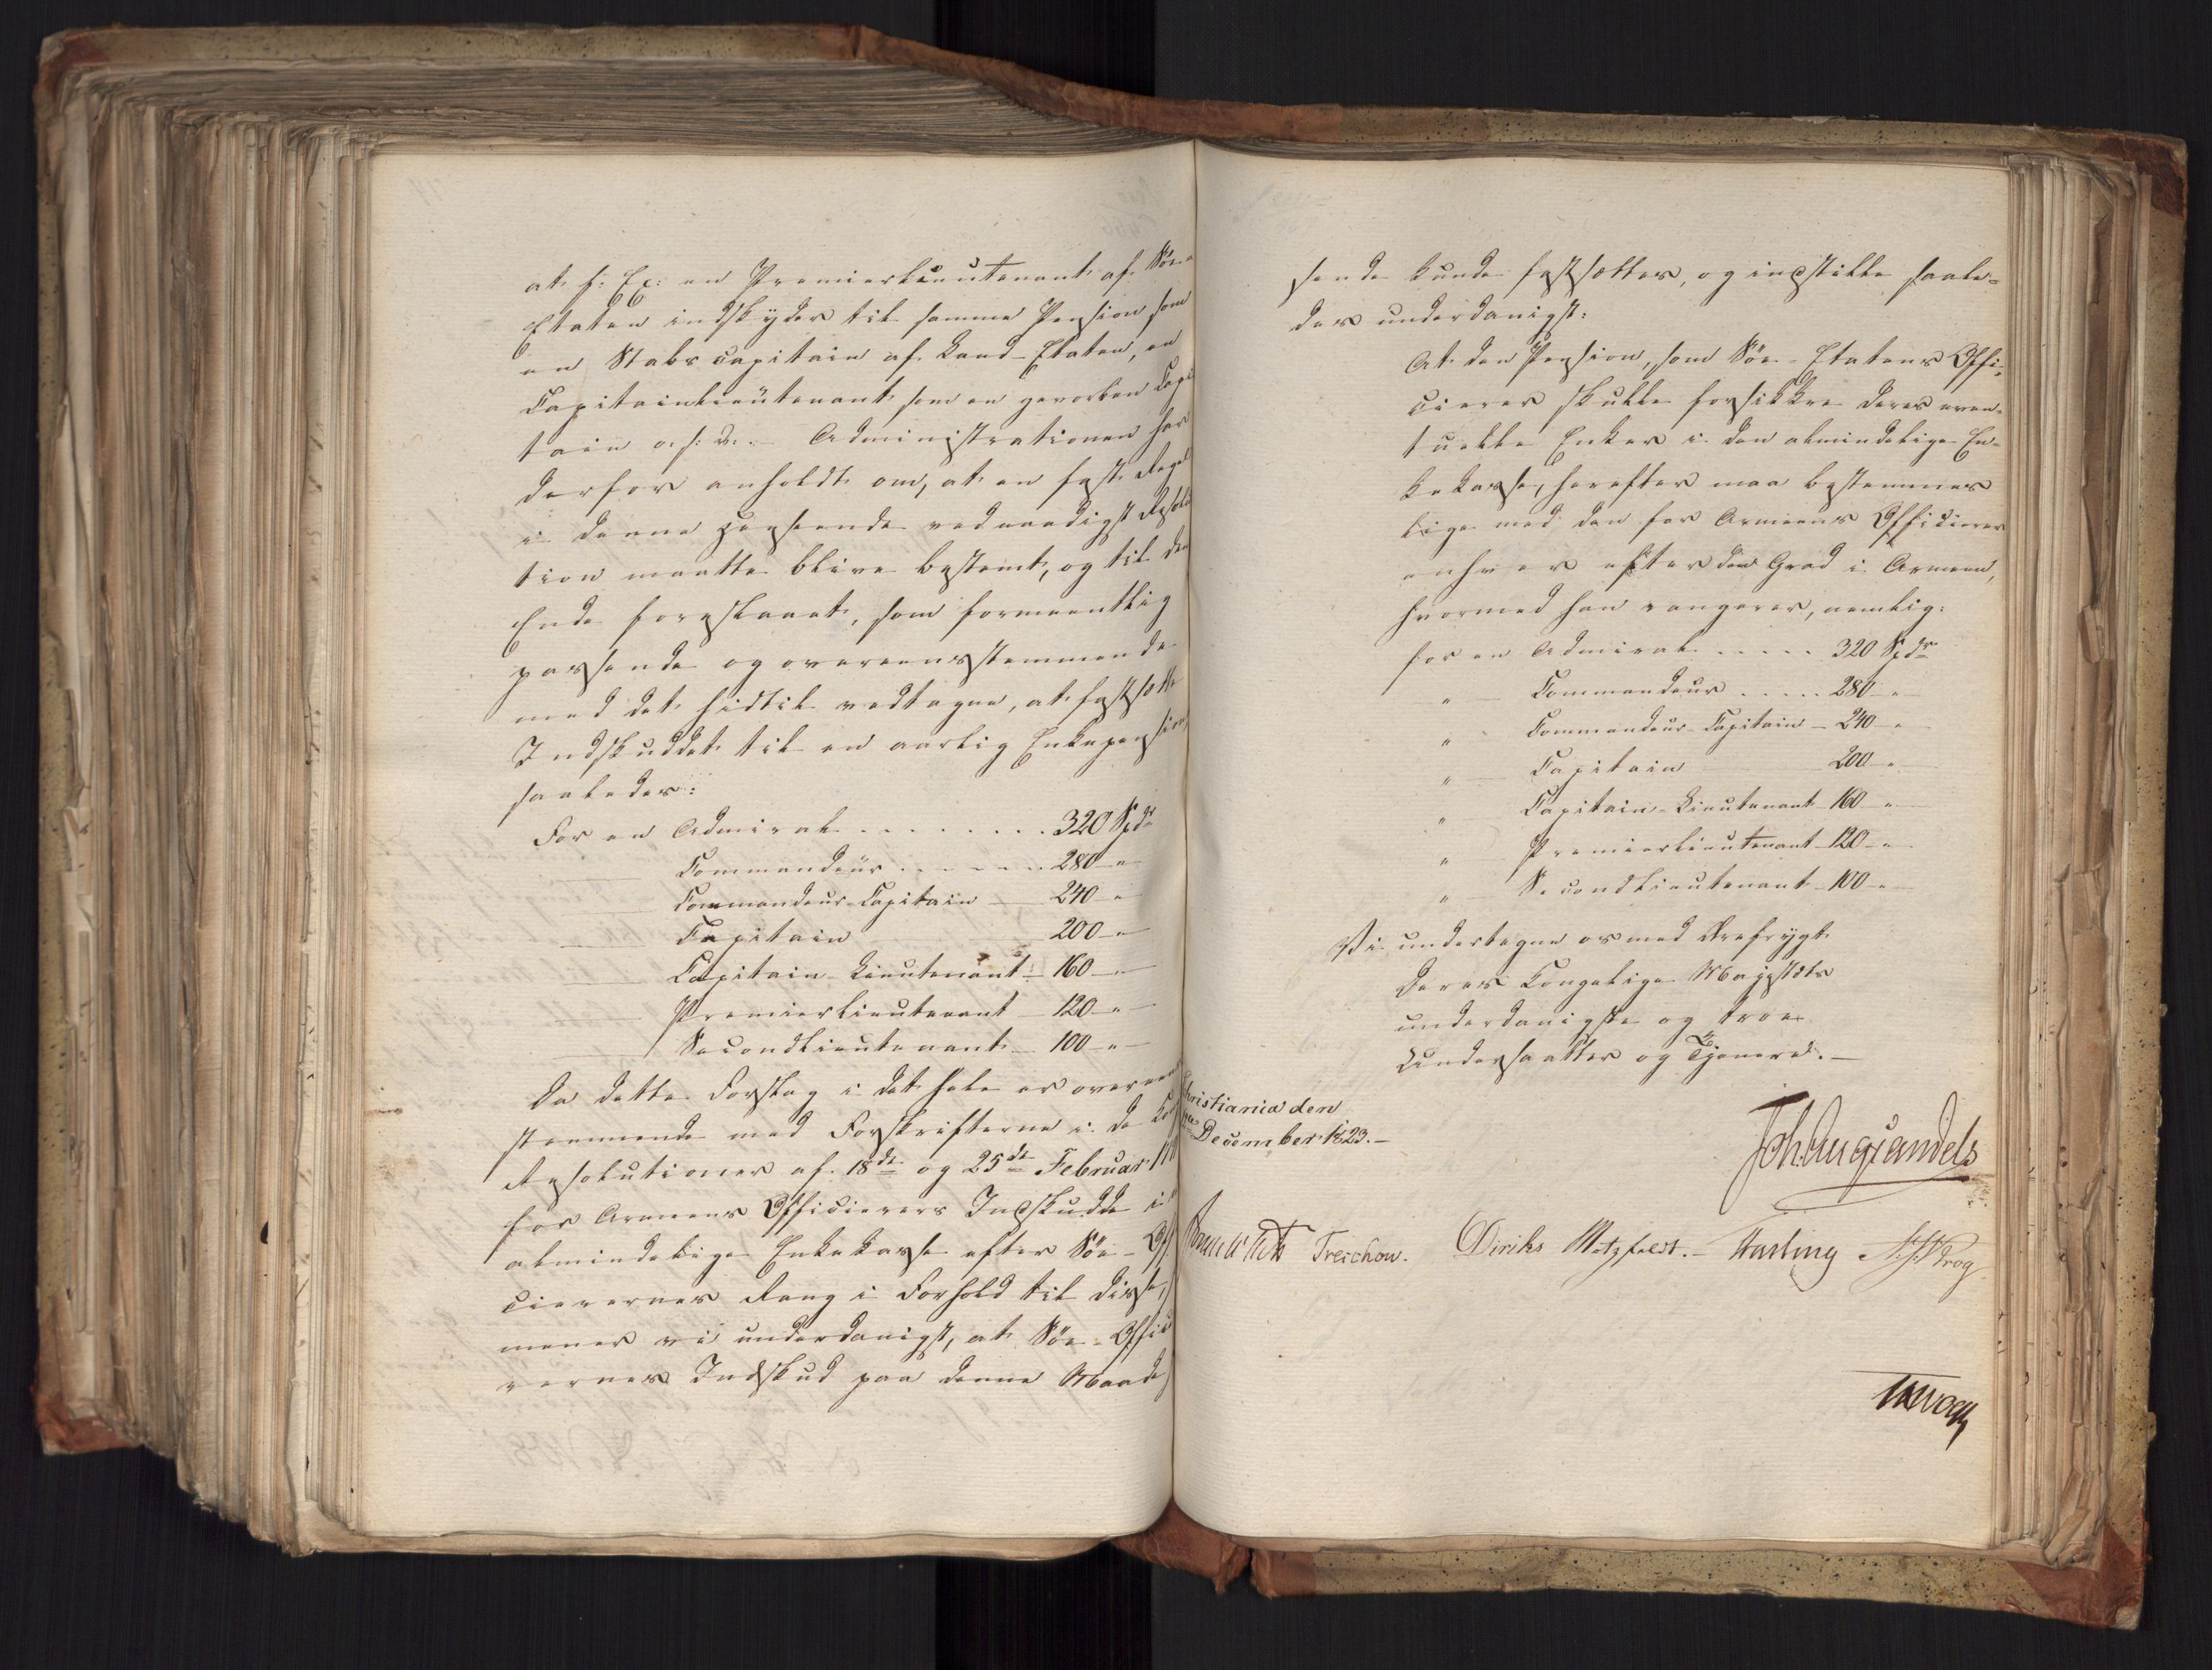 at f: Ex: en Premierlieutenant af Søe-
Etaten indskyder til samme Pension som
en Stabscapitain af Land-Etaten, en
Capitainlieutenant som en gevorben Capi
tain o. s. v. Administrationen har
derfor anholdt om, at en fast Regel
i denne Henseende ved naadigst Resolu
tion maatte blive bestemt, og til den
Ende foreslaaet, som formeentlig
passende og overeensstemmende
med det hidtil vedtagne, at fastsætte
Indskuddet til en aarlig Enkepension
saaledes:
For en Admiral . . . . . . . . 320 Spd
Commandeur . . . . . . 280 "
Commandeur-Capitain — 240 "
Capitain — 200 "
Capitain-Lieutenant — 160 "
Premierlieutenant — 120 "
Secondlieutenant — 100 "
Da dette Forslag i det hele er overeens
stemmende med Forskrifterne i de Kgl
Resolutioner af 18de og 25de Februar
for Armeens Officierers Indskudde i
almindelige Enkekasse efter Søe-Offi
cierernes Rang i Forhold til disse,
mener vi underdanigst, at Søe-Offici
erernes Indskud paa denne Maade
sende kunde fastsættes, og indstille saale-
des underdanigst:
At den Pension, som Søe-Etatens Offi-
cierer skulle forsikkre deres even-
tuelle Enker i den almindelige En-
kekasse, herefter maa bestemmes
lige med den for Armeens Officierer
enhver efter den Grad i Armeen,
hvormed han rangerer, nemlig:
for en Admiral . . . . . 320 Spdr
" — Commandeur . . . . . 280 "
" Commandeur-Capitain — 240 "
" — Capitain — 200 "
" Capitain-Lieutenant 160 "
" Premierlieutenant 120 "
" — Secondlieutenant 100 "
Vi undertegne os med Ærefrygt
Deres Kongelige Majestæts
underdanigste og troe
Undersaatter og Tjenere. —
Christiania den
December 1823. —
Joh. Aug. Sandels
Sommerhielm Treschow. Diriks Motzfeldt. — Fasting Krog
Vogt